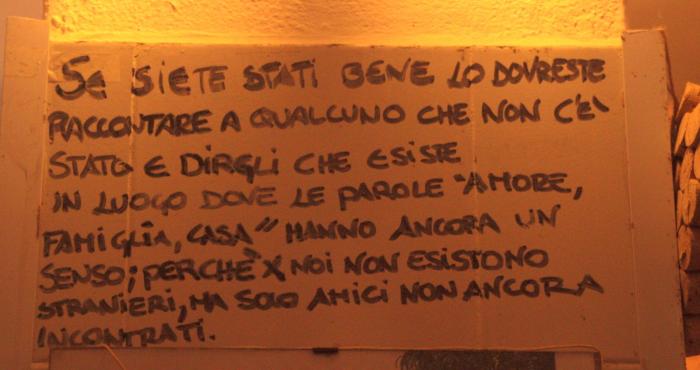 Se SIETE STATI BENE LO DOVRESTE
RACCONTARE A QUALCUNO CHE NON C'E'
STATO E DIRGLI CHE ESISTE
IN LUOGO DOVE LE PAROLE "AMORE,
FAMIGLIA, CASA" HANNO ANCORA UN
SENSO; PERCHÈ X NOI NON ESISTONO
STRANIERI, MA SOLO AMICI NON ANCORA
INCONTRATI.